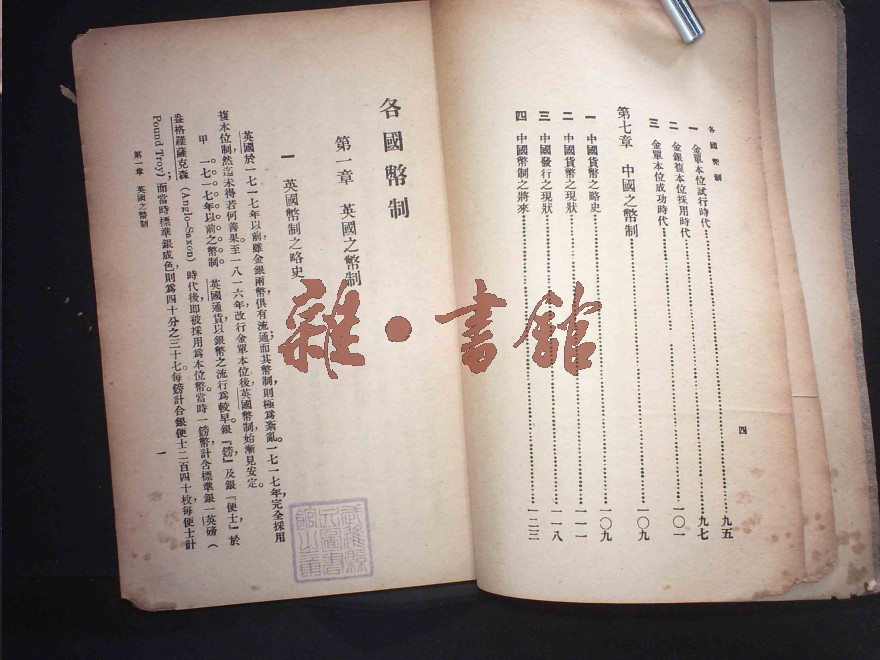 各國幣制
一 金單本位試行時代……九五
二 金銀複本位採用時代……九七
三 金單本位成功時代……一〇一
第七章 中國之幣制……一〇九
一 中國貨幣之略史……一〇九
二 中國貨幣之現狀……一一一
三 中國發行之現狀……一一八
四 中國幣制之將來……一二三
四
各國幣制
第一章 英國之幣制
一 英國幣制之略史
英國於一七一七年以前,雖金銀兩幣,俱有流通,而其幣制,則極爲紊亂。一七一七年,完全採用
複本位制,然迄未得若何善果。至一八一六年,改行金單本位後,英國幣制,始漸見安定。
甲 一七一七年以前之幣制 英國通貨,以銀幣之流行爲較早。銀『鎊』及銀『便士』,於
盎格羅薩克森(Anglo-Saxon)時代後,即被採用爲本位幣。當時一鎊幣,計含標準銀一英磅(
Pound Troy);而當時標準銀成色,則爲四十分之三十七。每鎊計合銀便士二百四十枚,每便士計
第一章 英國之幣制
一
雜·書館
武進縣
立圖書
館之章